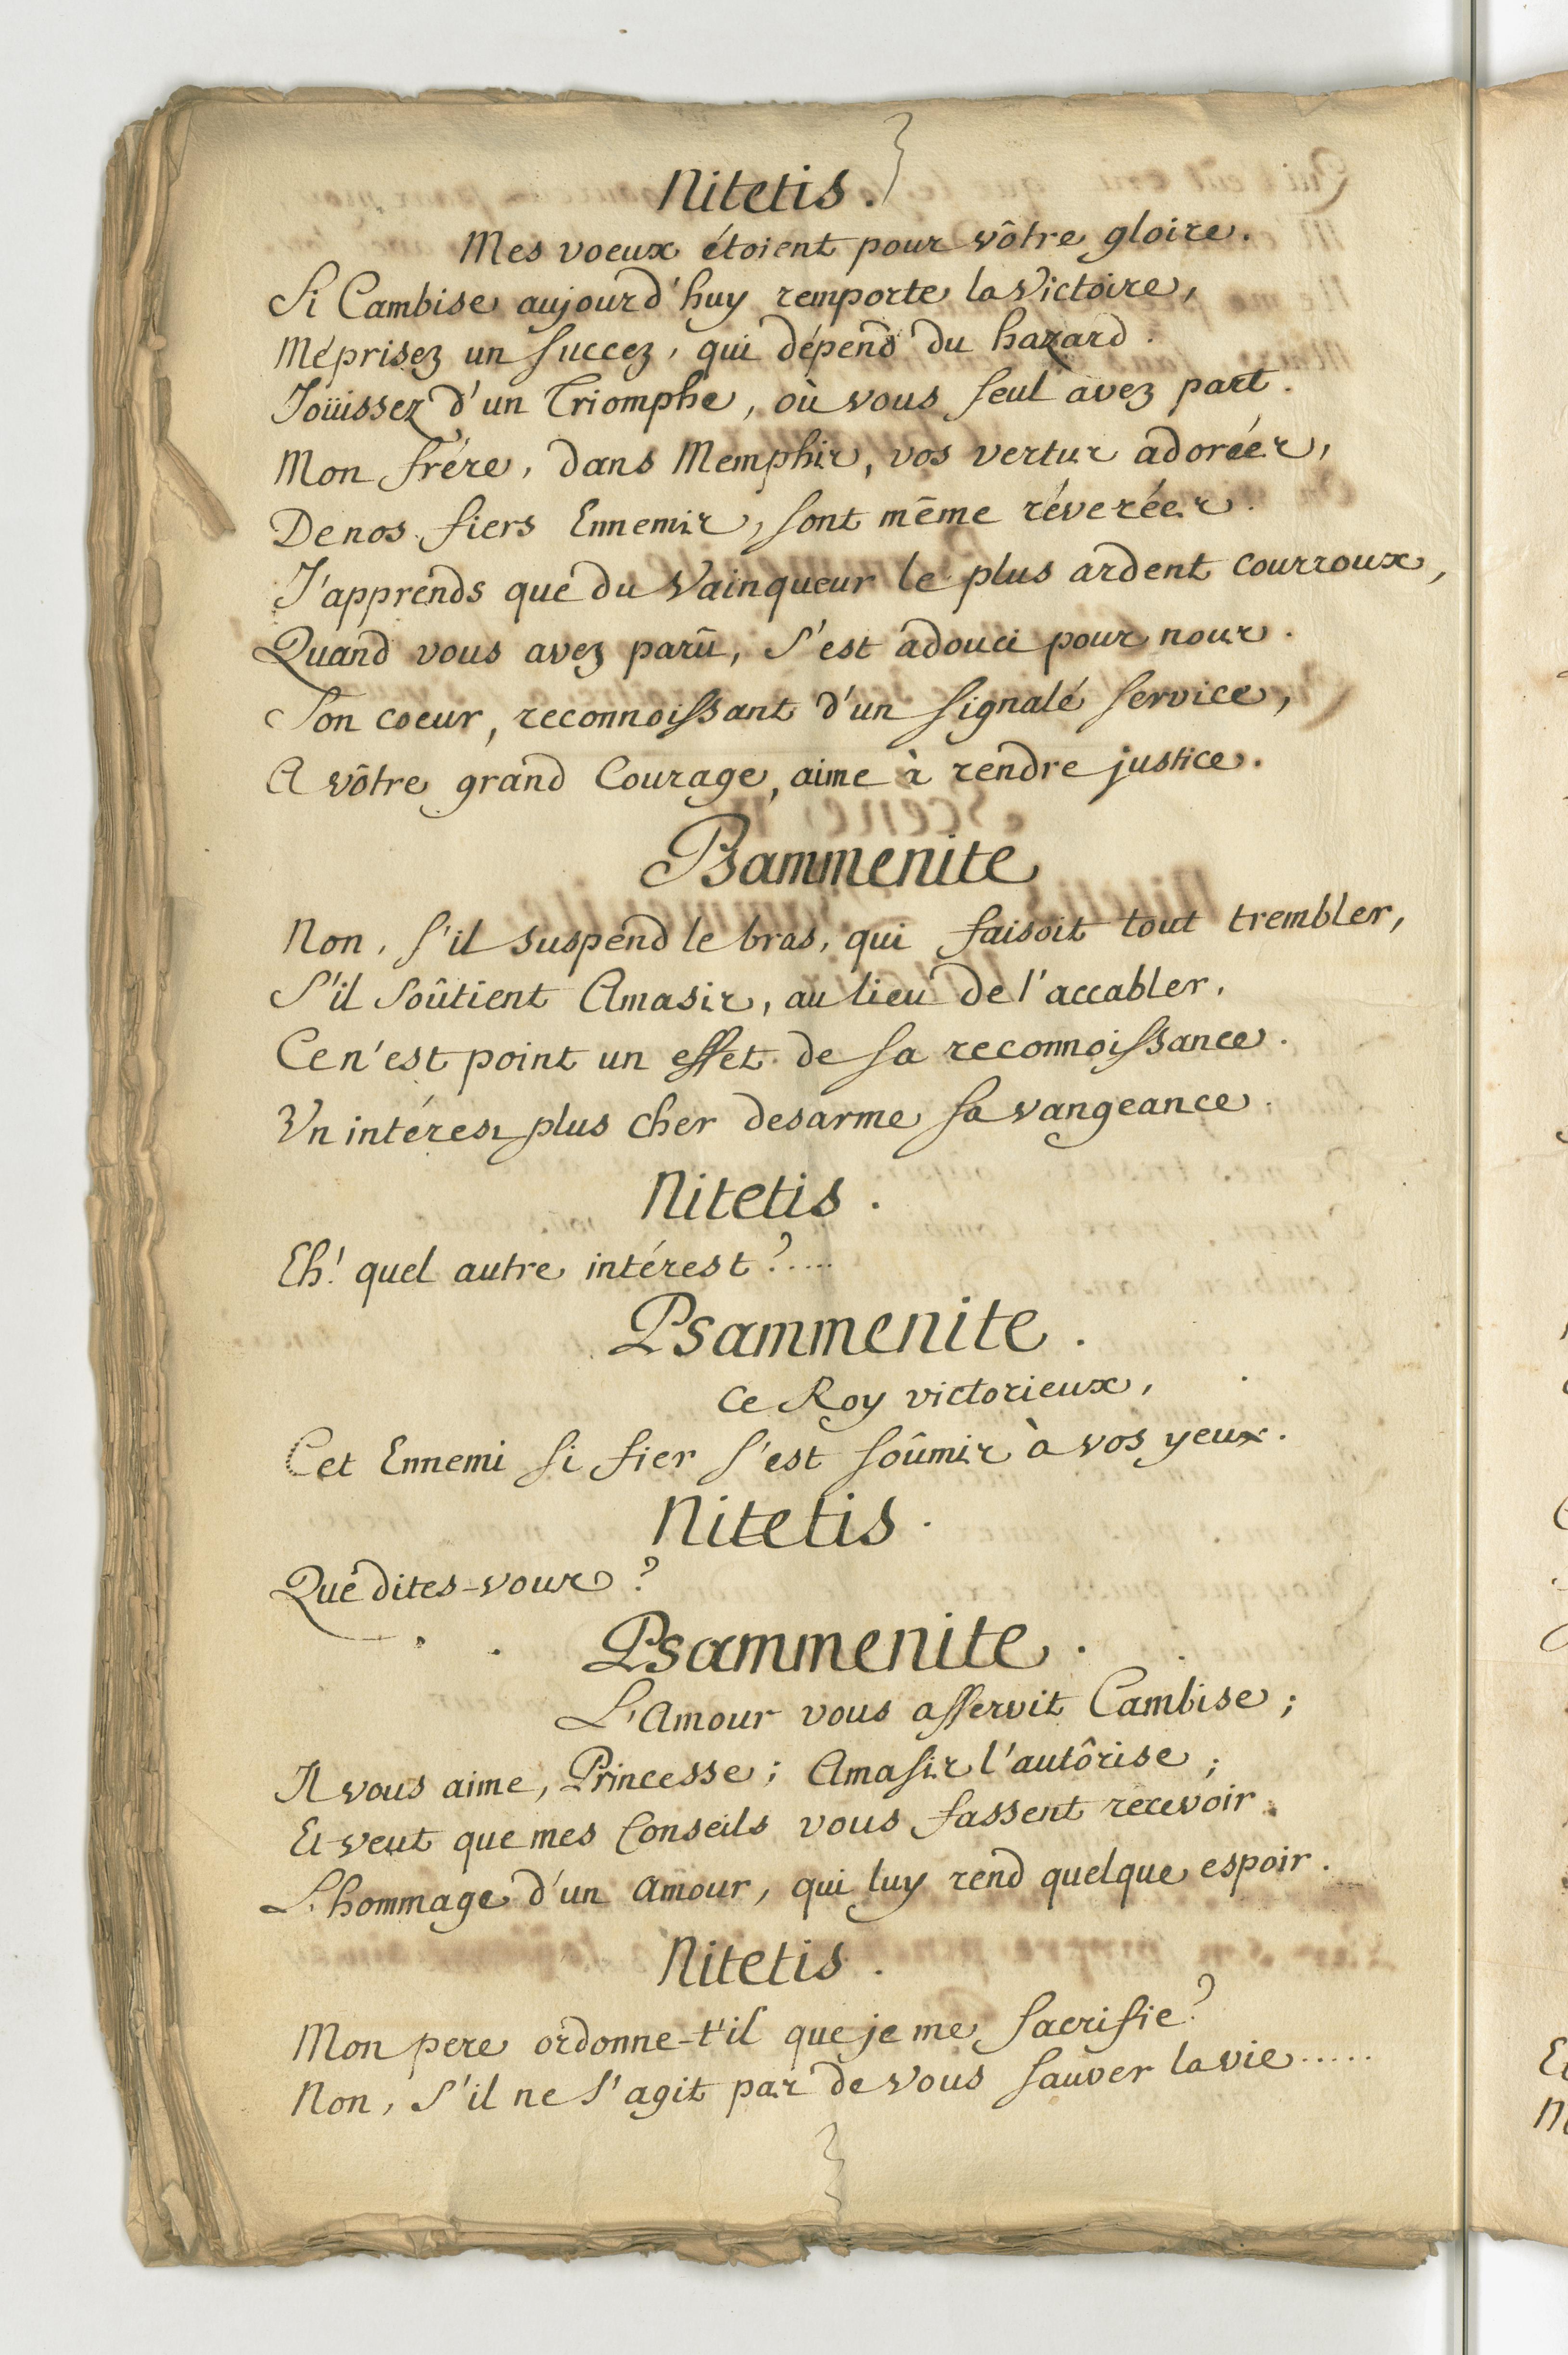 Nitetis.
Mes voeux étoient pour vôtre gloire.
Si Cambise aujourd'huy remporte la Victoire,
Méprisez un succez, qui dépend du hazard.
Joüissez d'un Triomphe, où vous seul avez part.
Mon frére, dans Memphis, vos vertus adorées,
De nos fiers Ennemis, sont même réverées.
J'apprends que du Vainqueur le plus ardent courroux,
Quand vous avez parû, s'est adouci pour nous.
Son coeur, reconnoissant d'un signalé service,
A vôtre grand Courage, aime à rendre justice.
Psammenite
Non, s'il suspend le bras, qui faisoit tout trembler,
S'il soûtient Amasis, au lieu de l'accabler,
Ce n'est point un effet de sa reconnoissance.
Un intérest plus cher desarme sa vangeance.
Nitetis.
Eh! quel autre intérest?.....
Psammenite.
Ce Roy victorieux,
Cet Ennemi si fier s'est soûmis à vos yeux.
Nitetis.
Que dites-vous?
Psammenite.
L'Amour vous asservit Cambise;
Il vous aime, Princesse; Amasis l'autôrise;
Et veut que mes Conseils vous fassent recevoir
L'hommage d'un amour, qui luy rend quelque espoir.
Nitetis.
Mon pere ordonne-t'il que je me sacrifie?
Non, s'il ne s'agit pas de vous sauver la vie.....